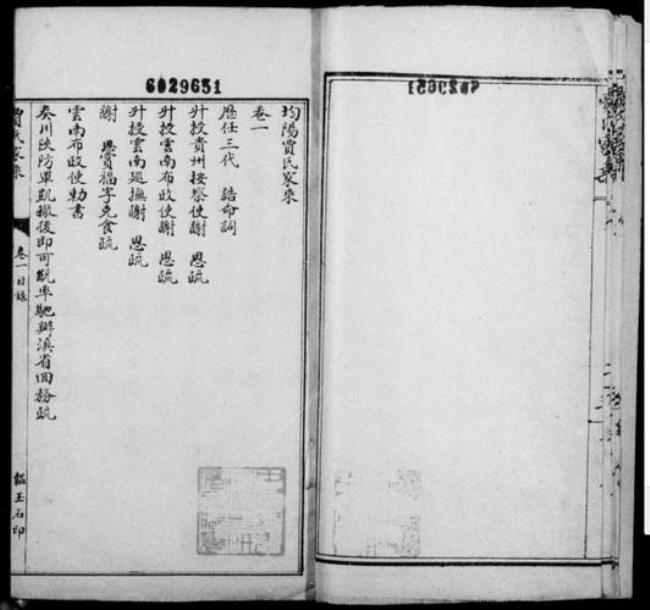 6029651
均陽賈氏家乘
卷一
歷任三代 誥命詞
升授貴州按察使謝 恩疏
升授雲南布政使謝 恩疏
升授雲南巡撫謝 恩疏
謝 恩賞福字克食疏
雲南布政使勅書
奏川陝防軍凱撤後即可親率馳辦滇省回務疏
賈氏家乘
卷一目錄
玉石印
6029651